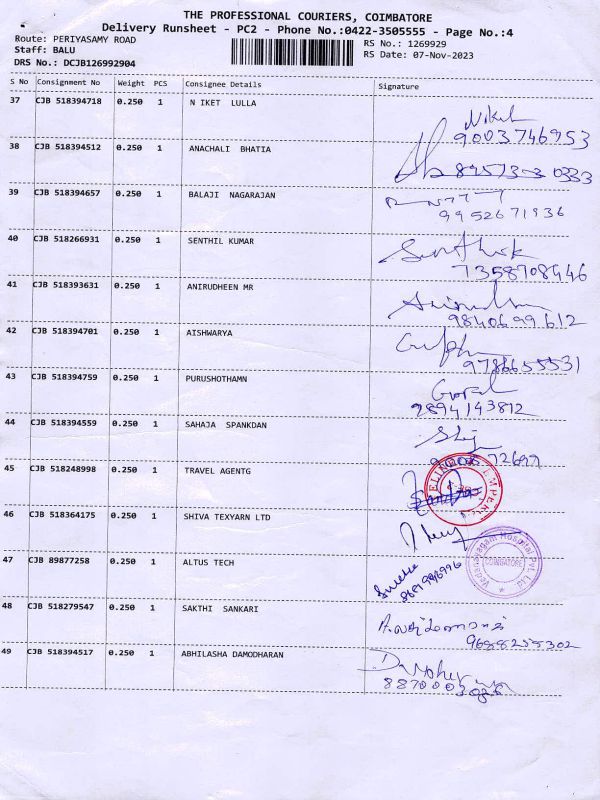 THE PROFESSIONAL COURIERS, COIMBATORE
Delivery Runsheet - PC2 - Phone No.:0422-3505555 - Page No.:4
Route: PERIYASAMY ROAD
Staff: BALU
DRS No.: DCJB126992904
RS No.: 1269929
RS Date: 07-Nov-2023
S No Consignment No Weight PCS Consignee Details Signature
37 CJB 518394718 0.250 1 N IKET LULLA
9003746953
38 CJB 518394512 0.250 1 ANACHALI BHATIA
39 CJB 518394657 0.250 1 BALAJI NAGARAJAN
9952671936
40 CJB 518266931 0.250 1 SENTHIL KUMAR
7358708446
41 CJB 518393631 0.250 1 ANIRUDHEEN MR
9840699612
42 CJB 518394701 0.250 1 AISHWARYA
9786655531
43 CJB 518394759 0.250 1 PURUSHOTHAMN
Gopal
9894143812
44 CJB 518394559 0.250 1 SAHAJA SPANKDAN
45 CJB 518248998 0.250 1 TRAVEL AGENTG
46 CJB 518364175 0.250 1 SHIVA TEXYARN LTD
47 CJB 89877258 0.250 1 ALTUS TECH
Hospital Pvt. Ltd
COIMBATORE
48 CJB 518279547 0.250 1 SAKTHI SANKARI
9688255302
49 CJB 518394517 0.250 1 ABHILASHA DAMODHARAN